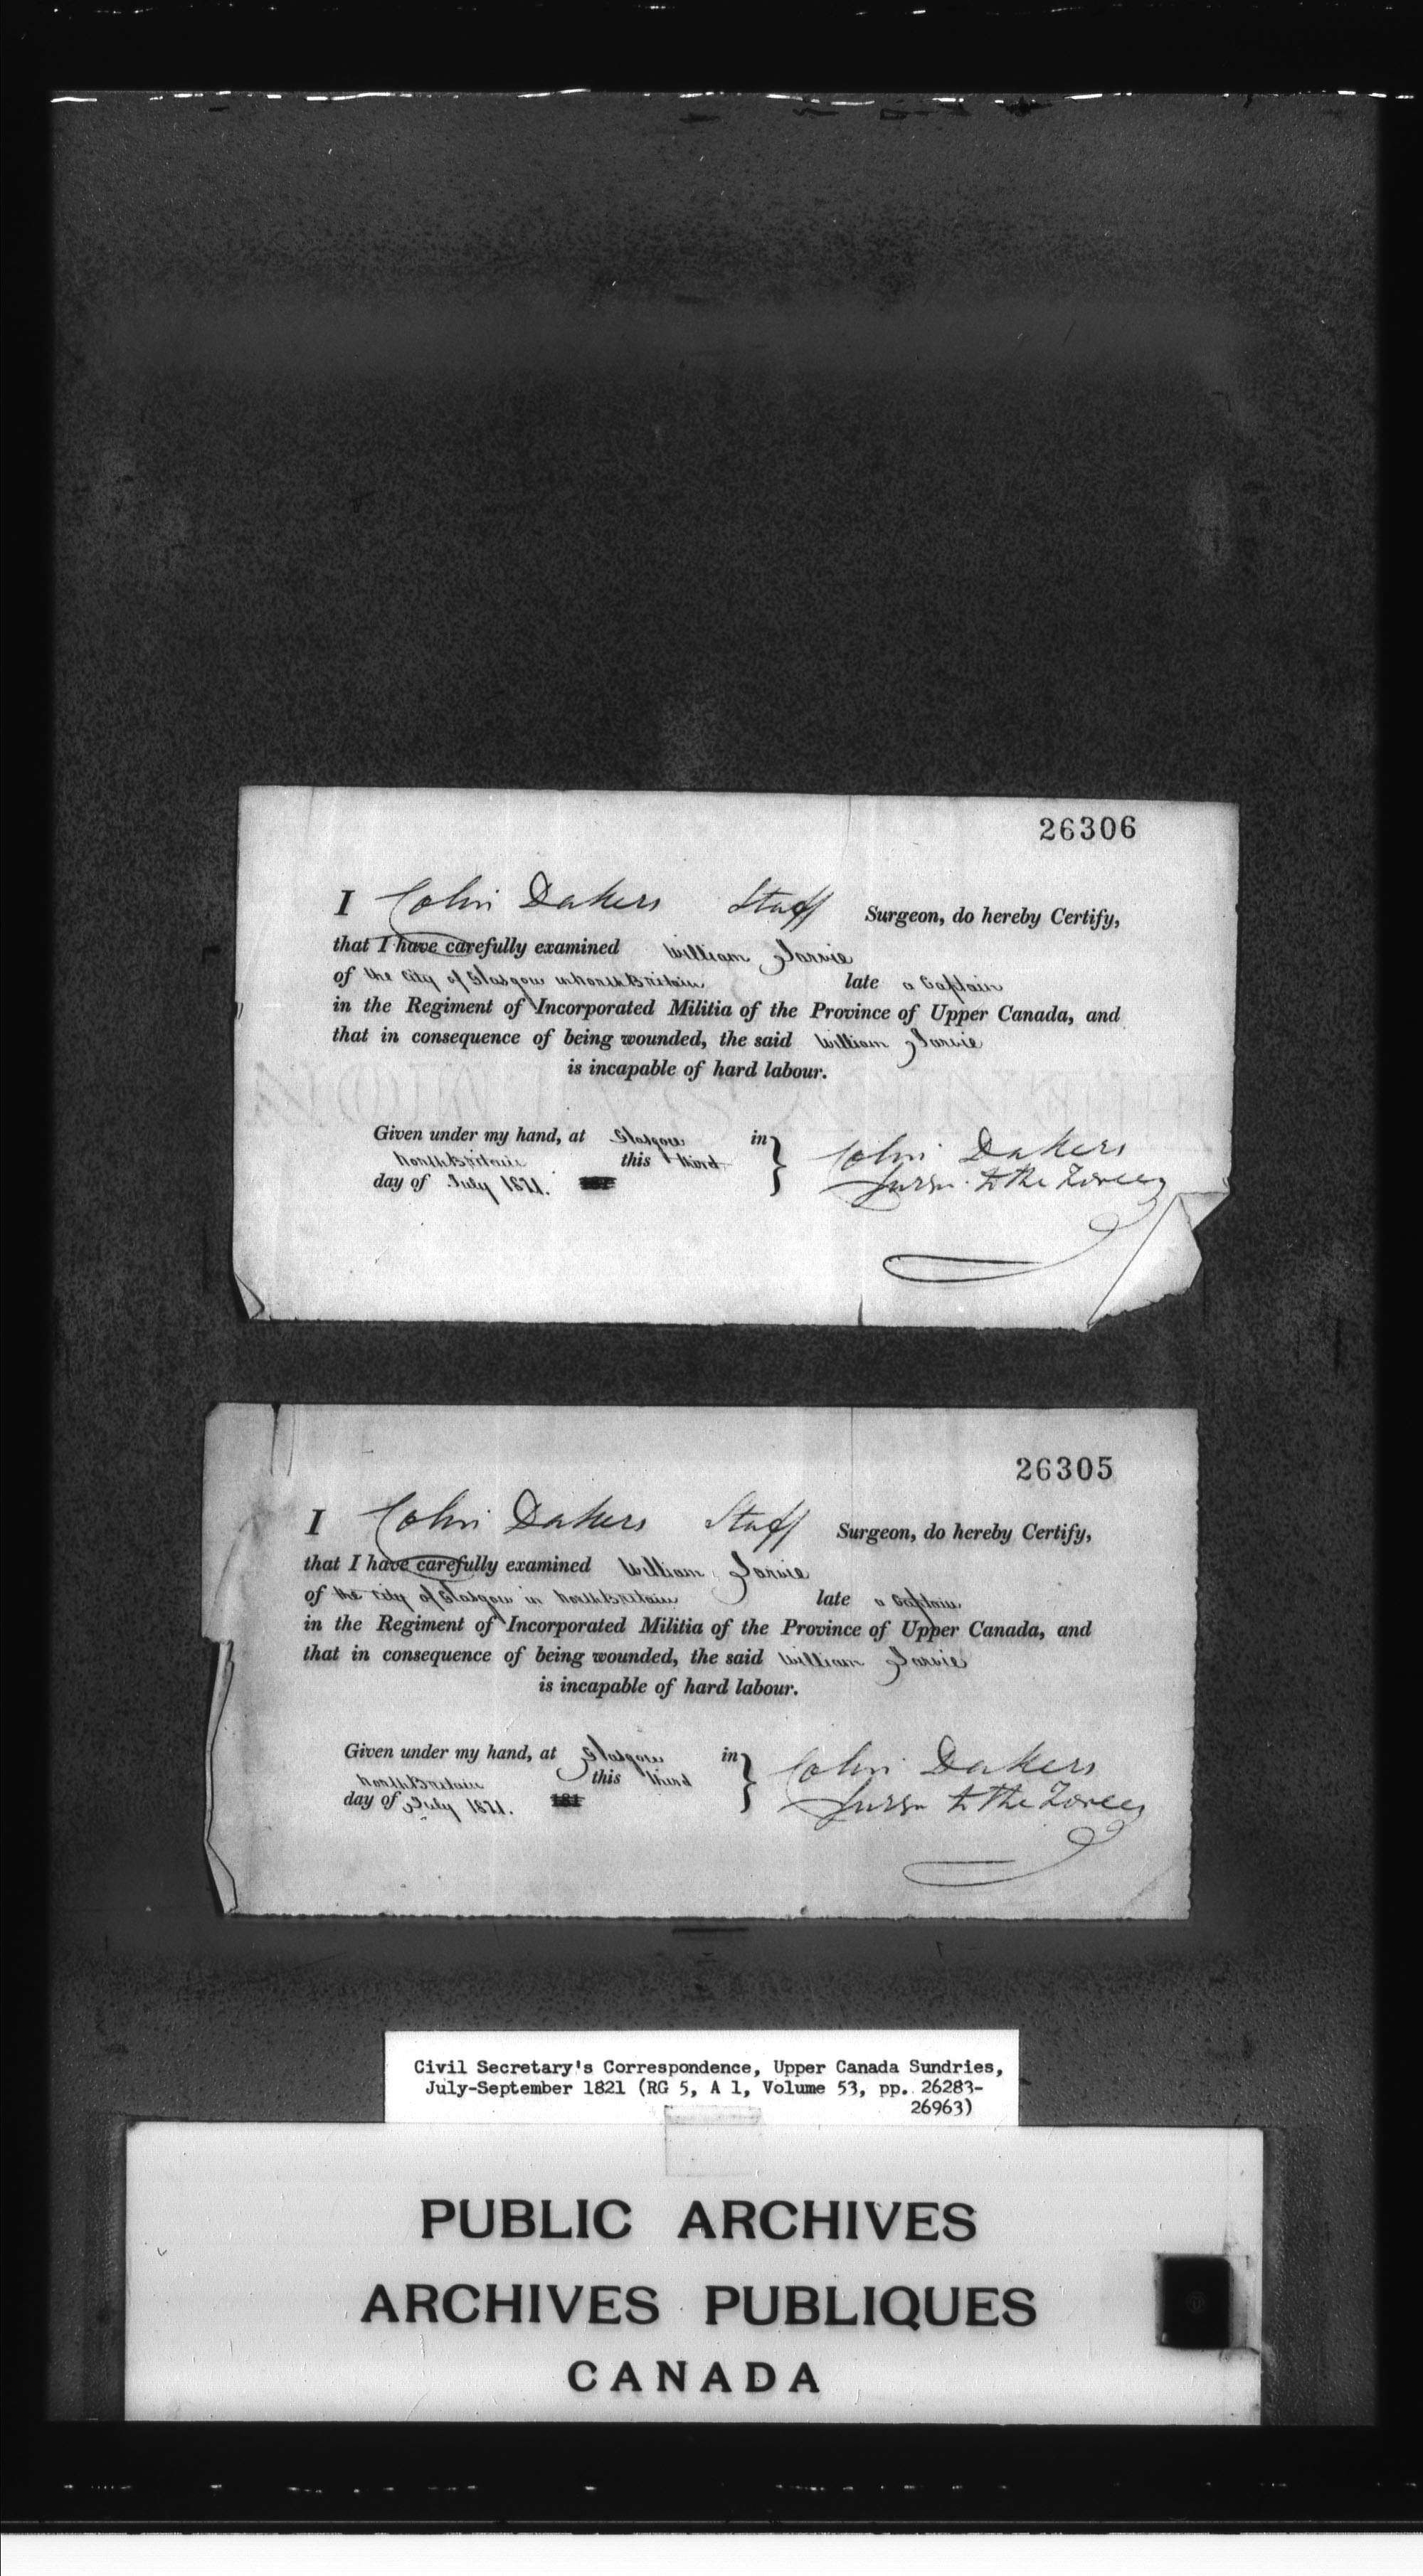 26306
I Colin Dakers Staff Surgeon, do hereby Certify,
that I have carefully examined William Jarvie
of the City of Glasgow in North Britain late a Captain
in the Regiment of Incorporated Militia of the Province of Upper Canada, and
that in consequence of being wounded, the said William Jarvie
is incapable of hard labour.
Given under my hand, at Glasgow in
North Britain this third
day of July 1821. 181
Colin Dakers
Surgn. to the Forces
26305
I Colin Dakers Staff Surgeon, do hereby Certify,
that I have carefully examined William Jarvie
of the City of Glasgow in North Britain late a Captain
in the Regiment of Incorporated Militia of the Province of Upper Canada, and
that in consequence of being wounded, the said William Jarvie
is incapable of hard labour.
Given under my hand, at Glasgow in
North Britain this third
day of July 1821. 181
Colin Dakers
Surgn to the Forces
Civil Secretary's Correspondence, Upper Canada Sundries,
July-September 1821 (RG 5, A 1, Volume 53, pp. 26283-
26963)
PUBLIC ARCHIVES
ARCHIVES PUBLIQUES
CANADA